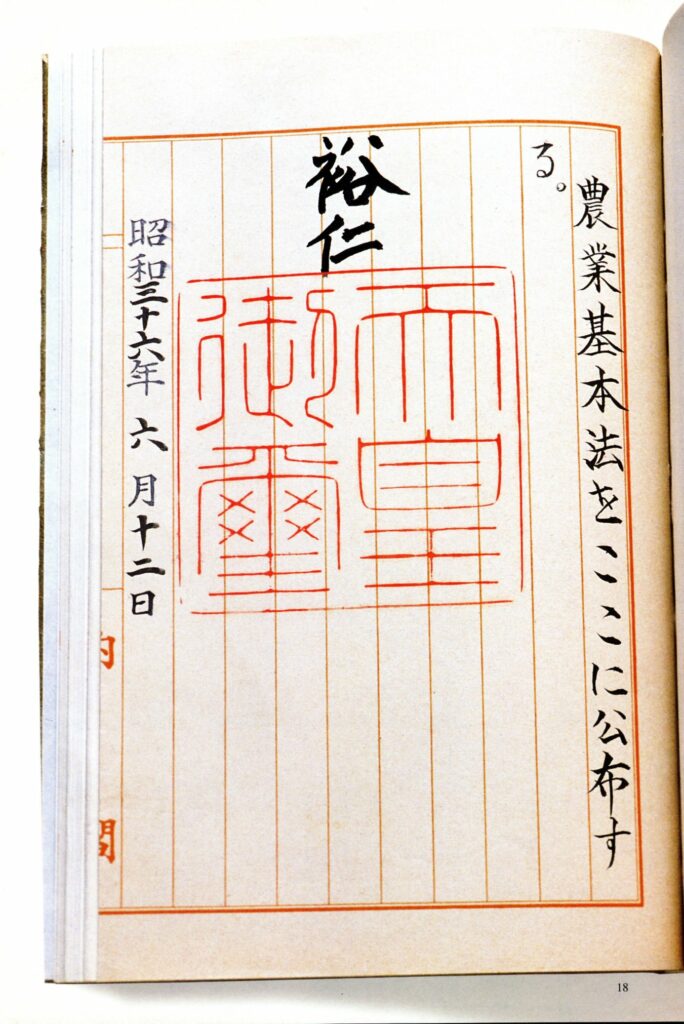 農業基本法をここに公布す
る。
裕仁
天皇
御璽
昭和三十六年六月十二日
内閣
18